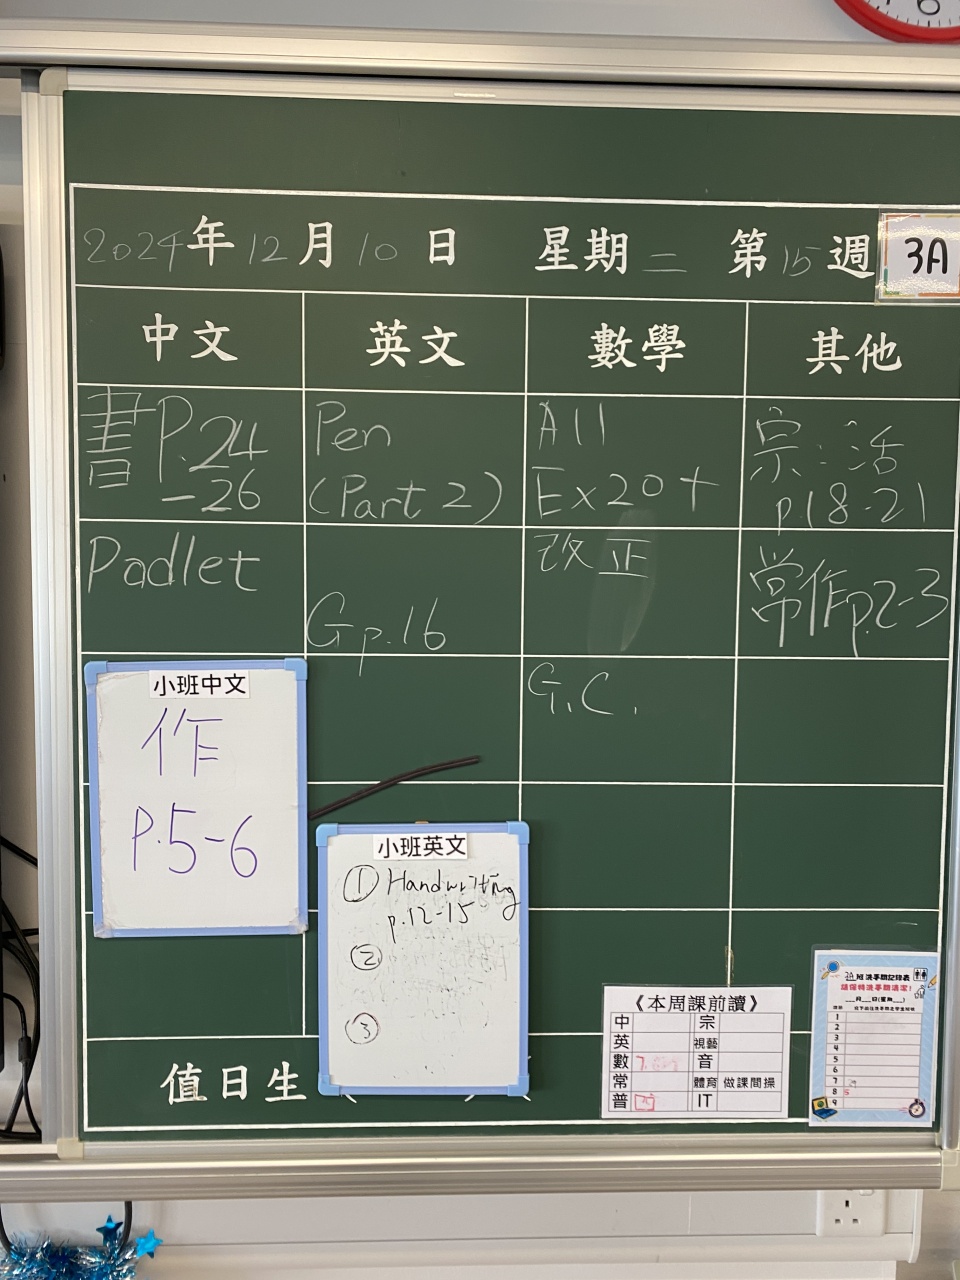 2024年12月10日 星期二 第15週 3A
中文 英文 數學 其他
書P.24
-26
Pen
(Part 2)
All
Ex20+
宗:活
p.18-21
Padlet
Gp.16
改正
常作p.2-3
G.C.
小班中文
作
P.5-6
小班英文
① Handwriting
p.12-15
②
③
值日生
《本周課前讀》
中 宗
英 視藝
數 音
常 體育 做課間操
普 IT
3A班洗手間記錄表
請保持洗手間清潔!
1
2
3
4
5
6
7
8 5
9